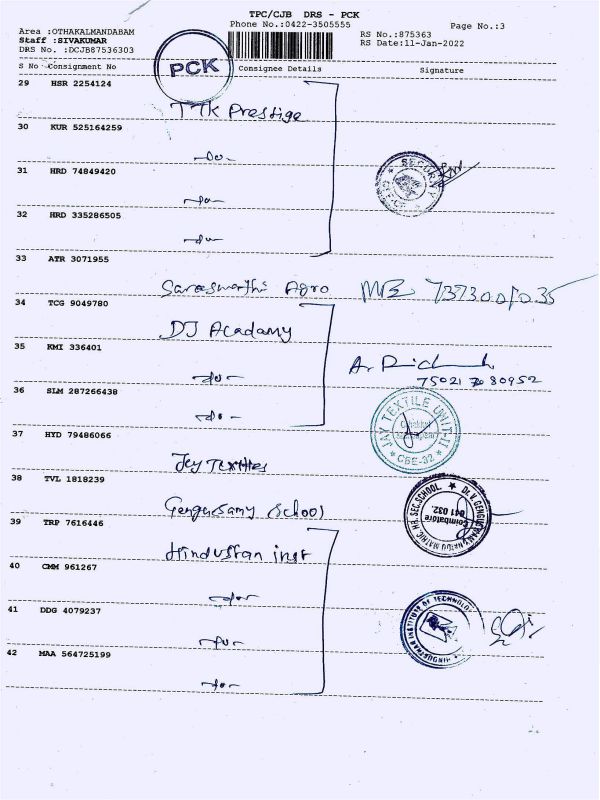 TPC/CJB DRS - PCK
Phone No.:0422-3505555
Page No.:3
Area :OTHAKALMANDABAM
Staff :SIVAKUMAR
DRS No. :DCJB87536303
RS No.:875363
RS Date:11-Jan-2022
PCK
S No Consignment No Consignee Details Signature
29 HSR 2254124
TTK Prestige
30 KUR 525164259
-do-
31 HRD 74849420
-do-
SECURITY
32 HRD 335286505
-do-
33 ATR 3071955
Saraswathi Agro
34 TCG 9049780
DJ Acadamy
35 KMI 336401
-do-
75021 80952
36 SLM 287266438
-do-
JAY TEXTILE UNIT-II
CBE-32
37 HYD 79486066
Jey Textiles
38 TVL 1818239
Gengusamy School
MATRIC. HR. SEC. SCHOOL.
Coimbatore
641 032.
39 TRP 7616446
Hindustan inst
40 CMM 961267
-do-
41 DDG 4079237
-do-
HINDUSTHAN INSTITUTE OF TECHNOLOGY
42 MAA 564725199
-do-